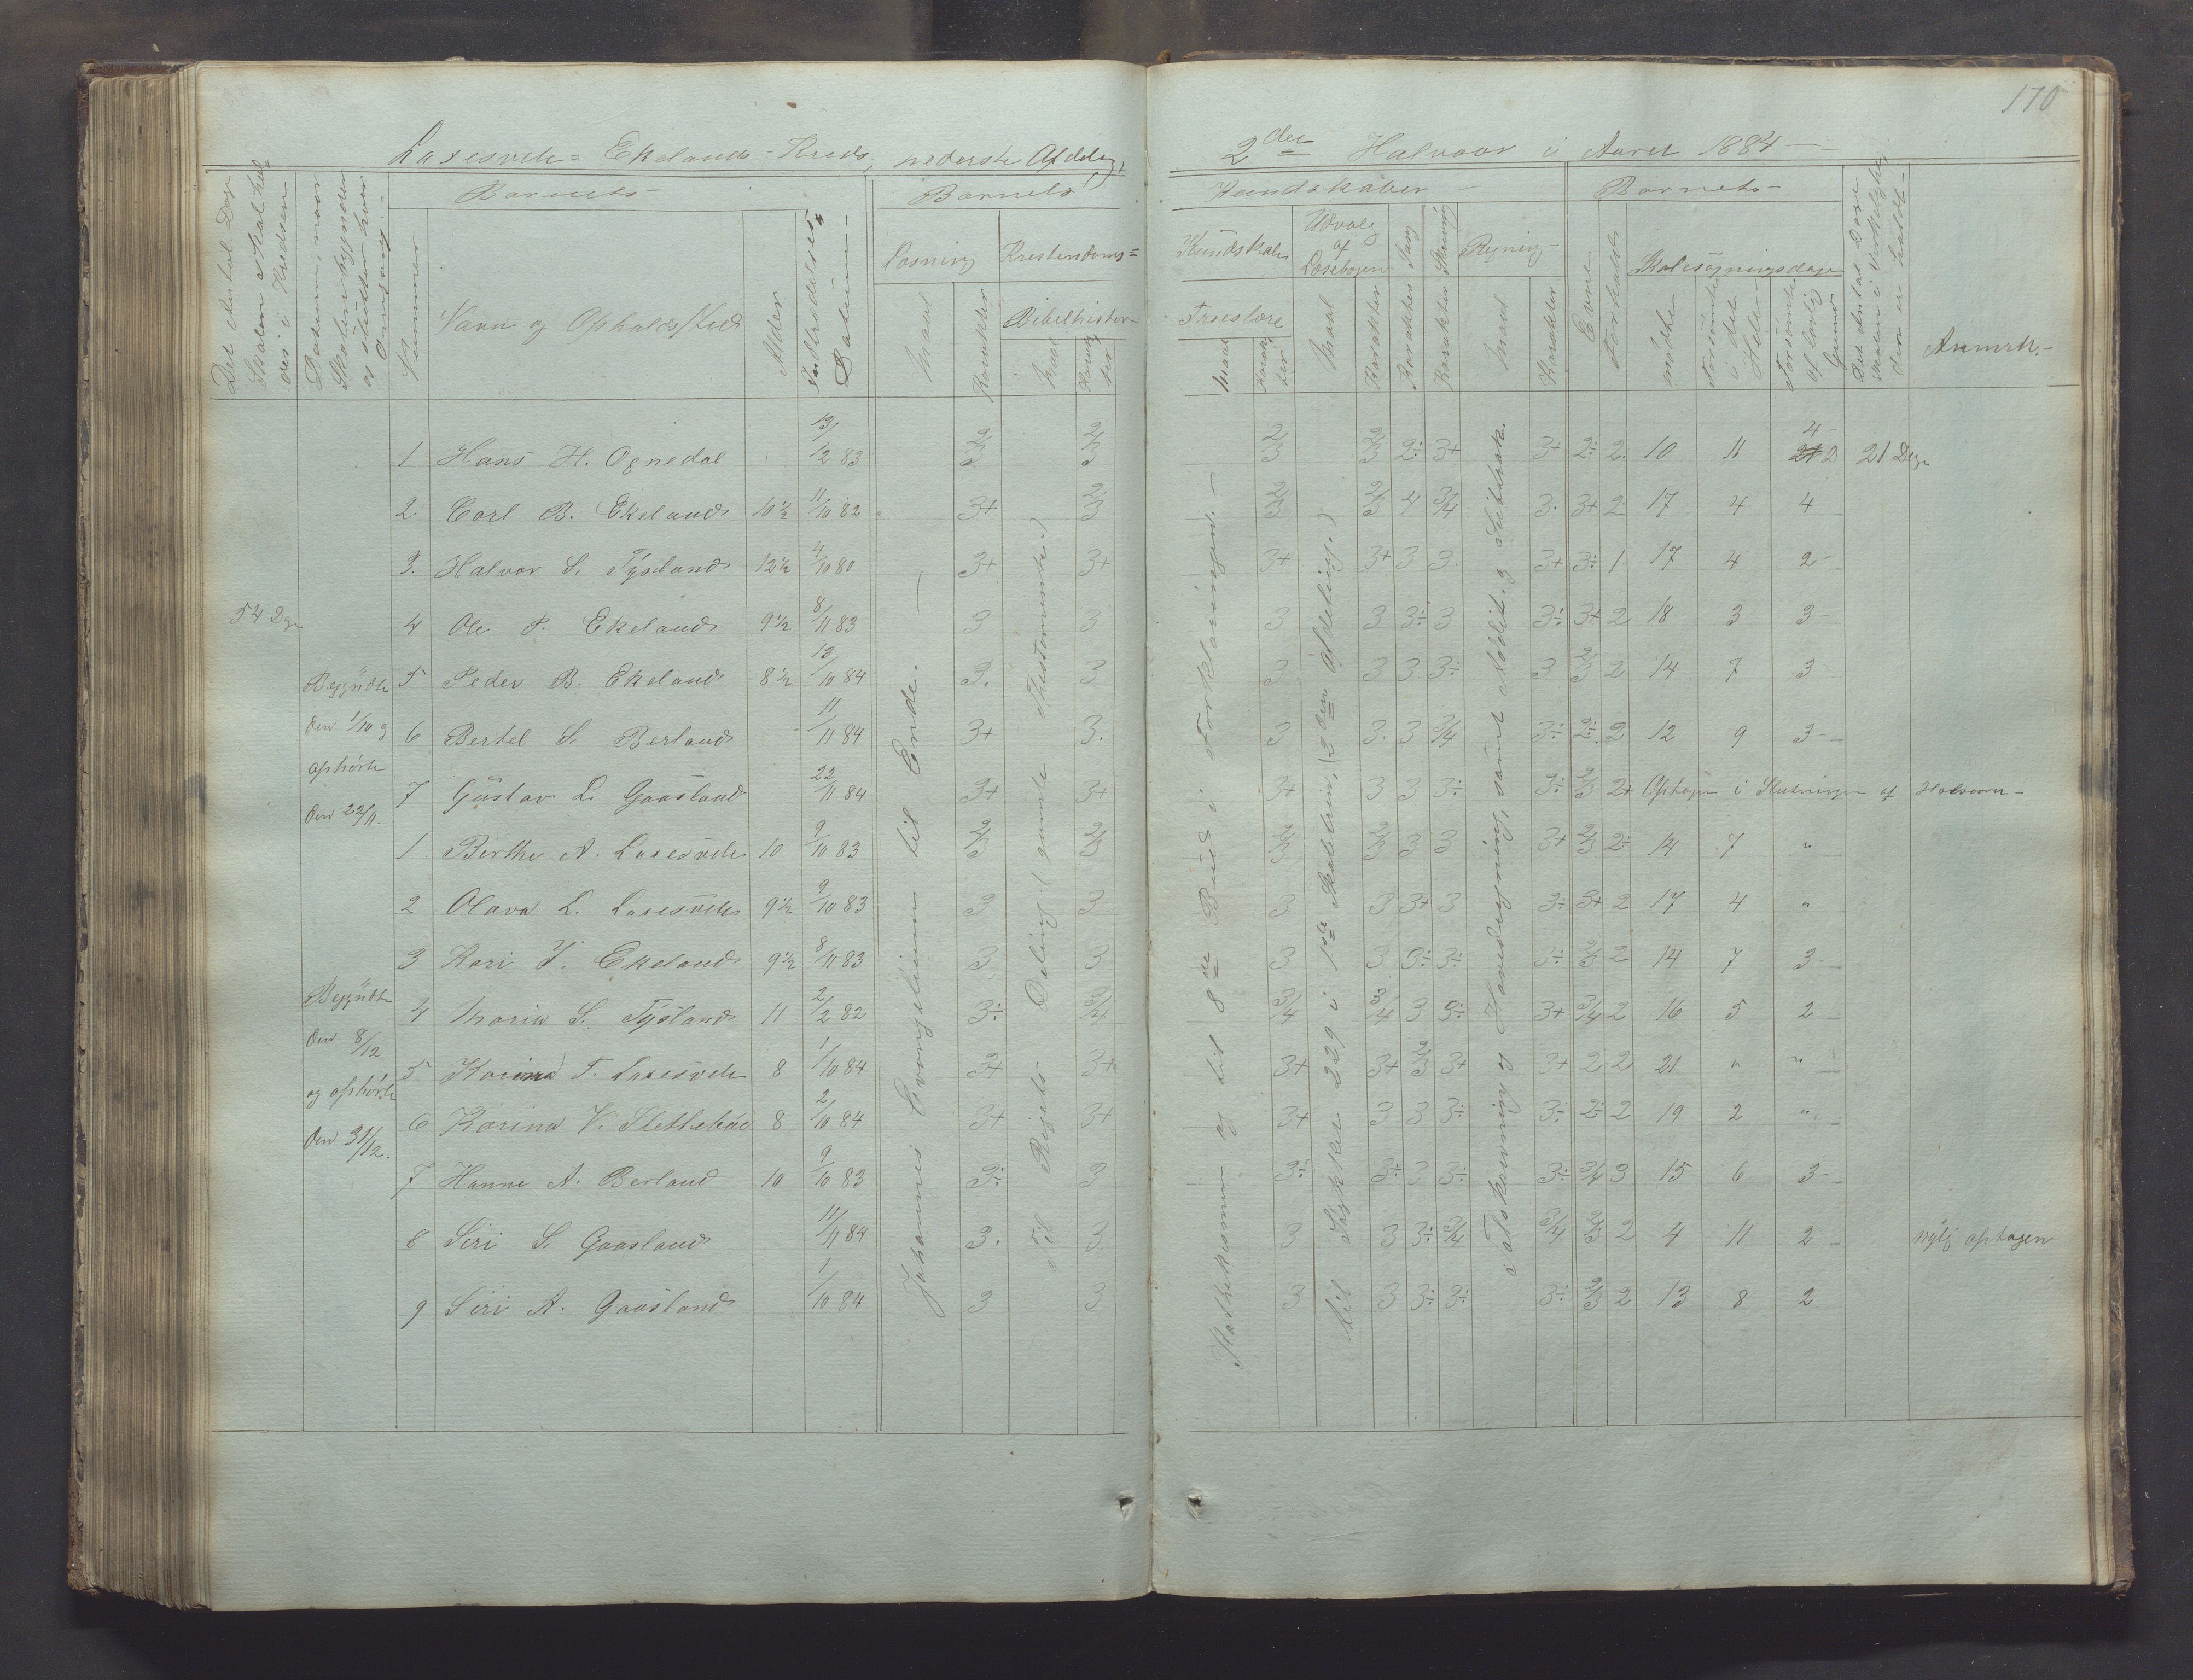 170
Lasesvele= Ekelands Kreds, nederste Afdeling,
2den Halvaar i Aaret 1884 —
Det Antal Dage Skolen skal holdes i Kredsen
Datum, naar Skolen begynder og slutter hver Omgang
Barnets
Nummer
Navn og Opholdssted
Alder
Indtrædelses= Datum
Barnets
Læsning
Maal
Karakter
Kristendoms=
Bibelhistorie
Maal
Karakter
Kundskaber
Kundskab
Troeslære
Maal
Karakter
Udvalg af Læsebogen
Maal
Karakter
Sang
Karakter
Skrivning
Karakter
Regning
Maal
Karakter
Barnets
Evne
Forhold
Skolesøgningsdage
mødte
forsømte i det Hele
forsømte af lovlig Grund
Det Antal Dage Skolen i Virkeligheden er holdt
Anmærk.
54 Dage
Begyndte
den 1/10 og
ophørte
den 22/11.
Begyndte
den 8/12
og ophørte
den 31/12.
Johannes Evangelium til Ende.
Til Rigets Deling (gamle Thestamente)
Stakkismen og til 8de Bud i Forklaringen.
til Stykke 229 i 1ste Skoletrin, (2den Afdeling.)
Tavleregning og Hovedregning, samt Addit. og Subtrak.
1 Hans H. Ognedal 13/12 83 2/3 2/3 2/3 2/3 2÷ 3+ 3+ 2÷ 2. 10 11 4 21 Dage
2. Carl B. Ekeland 10 1/2 11/10 82 3+ 2/3 2/3 2/3 4 3/4 3. 3+ 2 17 4 4
3. Halvor S. Tysland 12 1/2 4/10 80 3+ 3+ 3+ 3+ 3 3. 3+ 3÷ 1 17 4 2
4 Ole P. Ekeland 9 1/2 8/11 83 3 3 3 3 3÷ 3 3÷ 3+ 2 18 3 3
5 Peder B. Ekeland 8 1/2 13/10 84 3. 3 3 3 3 3÷ 3 2/3 2 14 7 3
6 Bertel S. Berland 11/11 84 3+ 3. 3 3 3 3/4 3÷ 2÷ 2 12 9 3
7 Gustav L. Gaasland 22/11 84 3+ 3+ 3+ 3 3 3÷ 3÷ 2/3 2+ Optagen i Slutningen af Halvaaret
1 Birthe A. Lasesvele 10 9/10 83 2/3 2/3 2/3 2/3 3 3 3+ 2/3 2÷ 14 7 "
2 Olava L. Lasesvele 9 1/2 9/10 83 3 3 3 3 3+ 3 3÷ 3+ 2 17 4 "
3 Kari J. Ekeland 9 1/2 8/11 83 3 3 3 3 3÷ 3÷ 3÷ 2/3 2 14 7 3
4 Maria S. Tysland 11 2/2 82 3÷ 3/4 3/4 3/4 3 3÷ 3+ 3/4 2 16 5 2
5 Karina T. Lasesvele 8 1/10 84 3+ 3+ 3+ 3+ 2/3 3+ 3+ 2 2 21 " "
6 Karina V. Slettebøe 8 2/10 84 3+ 3+ 3+ 3 3 3÷ 3÷ 2÷ 2 19 2 "
7 Hanne A. Berland 10 9/10 83 3÷ 3 3÷ 3+ 3 3÷ 3÷ 3/4 3 15 6 3
8 Siri S. Gaasland 11/11 84 3. 3 3 3 3÷ 3/4 3/4 2/3 2 4 11 2 nylig optagen
9 Siri A. Gaasland 1/10 84 3 3 3 3 3÷ 3÷ 3÷ 2/3 2 13 8 2